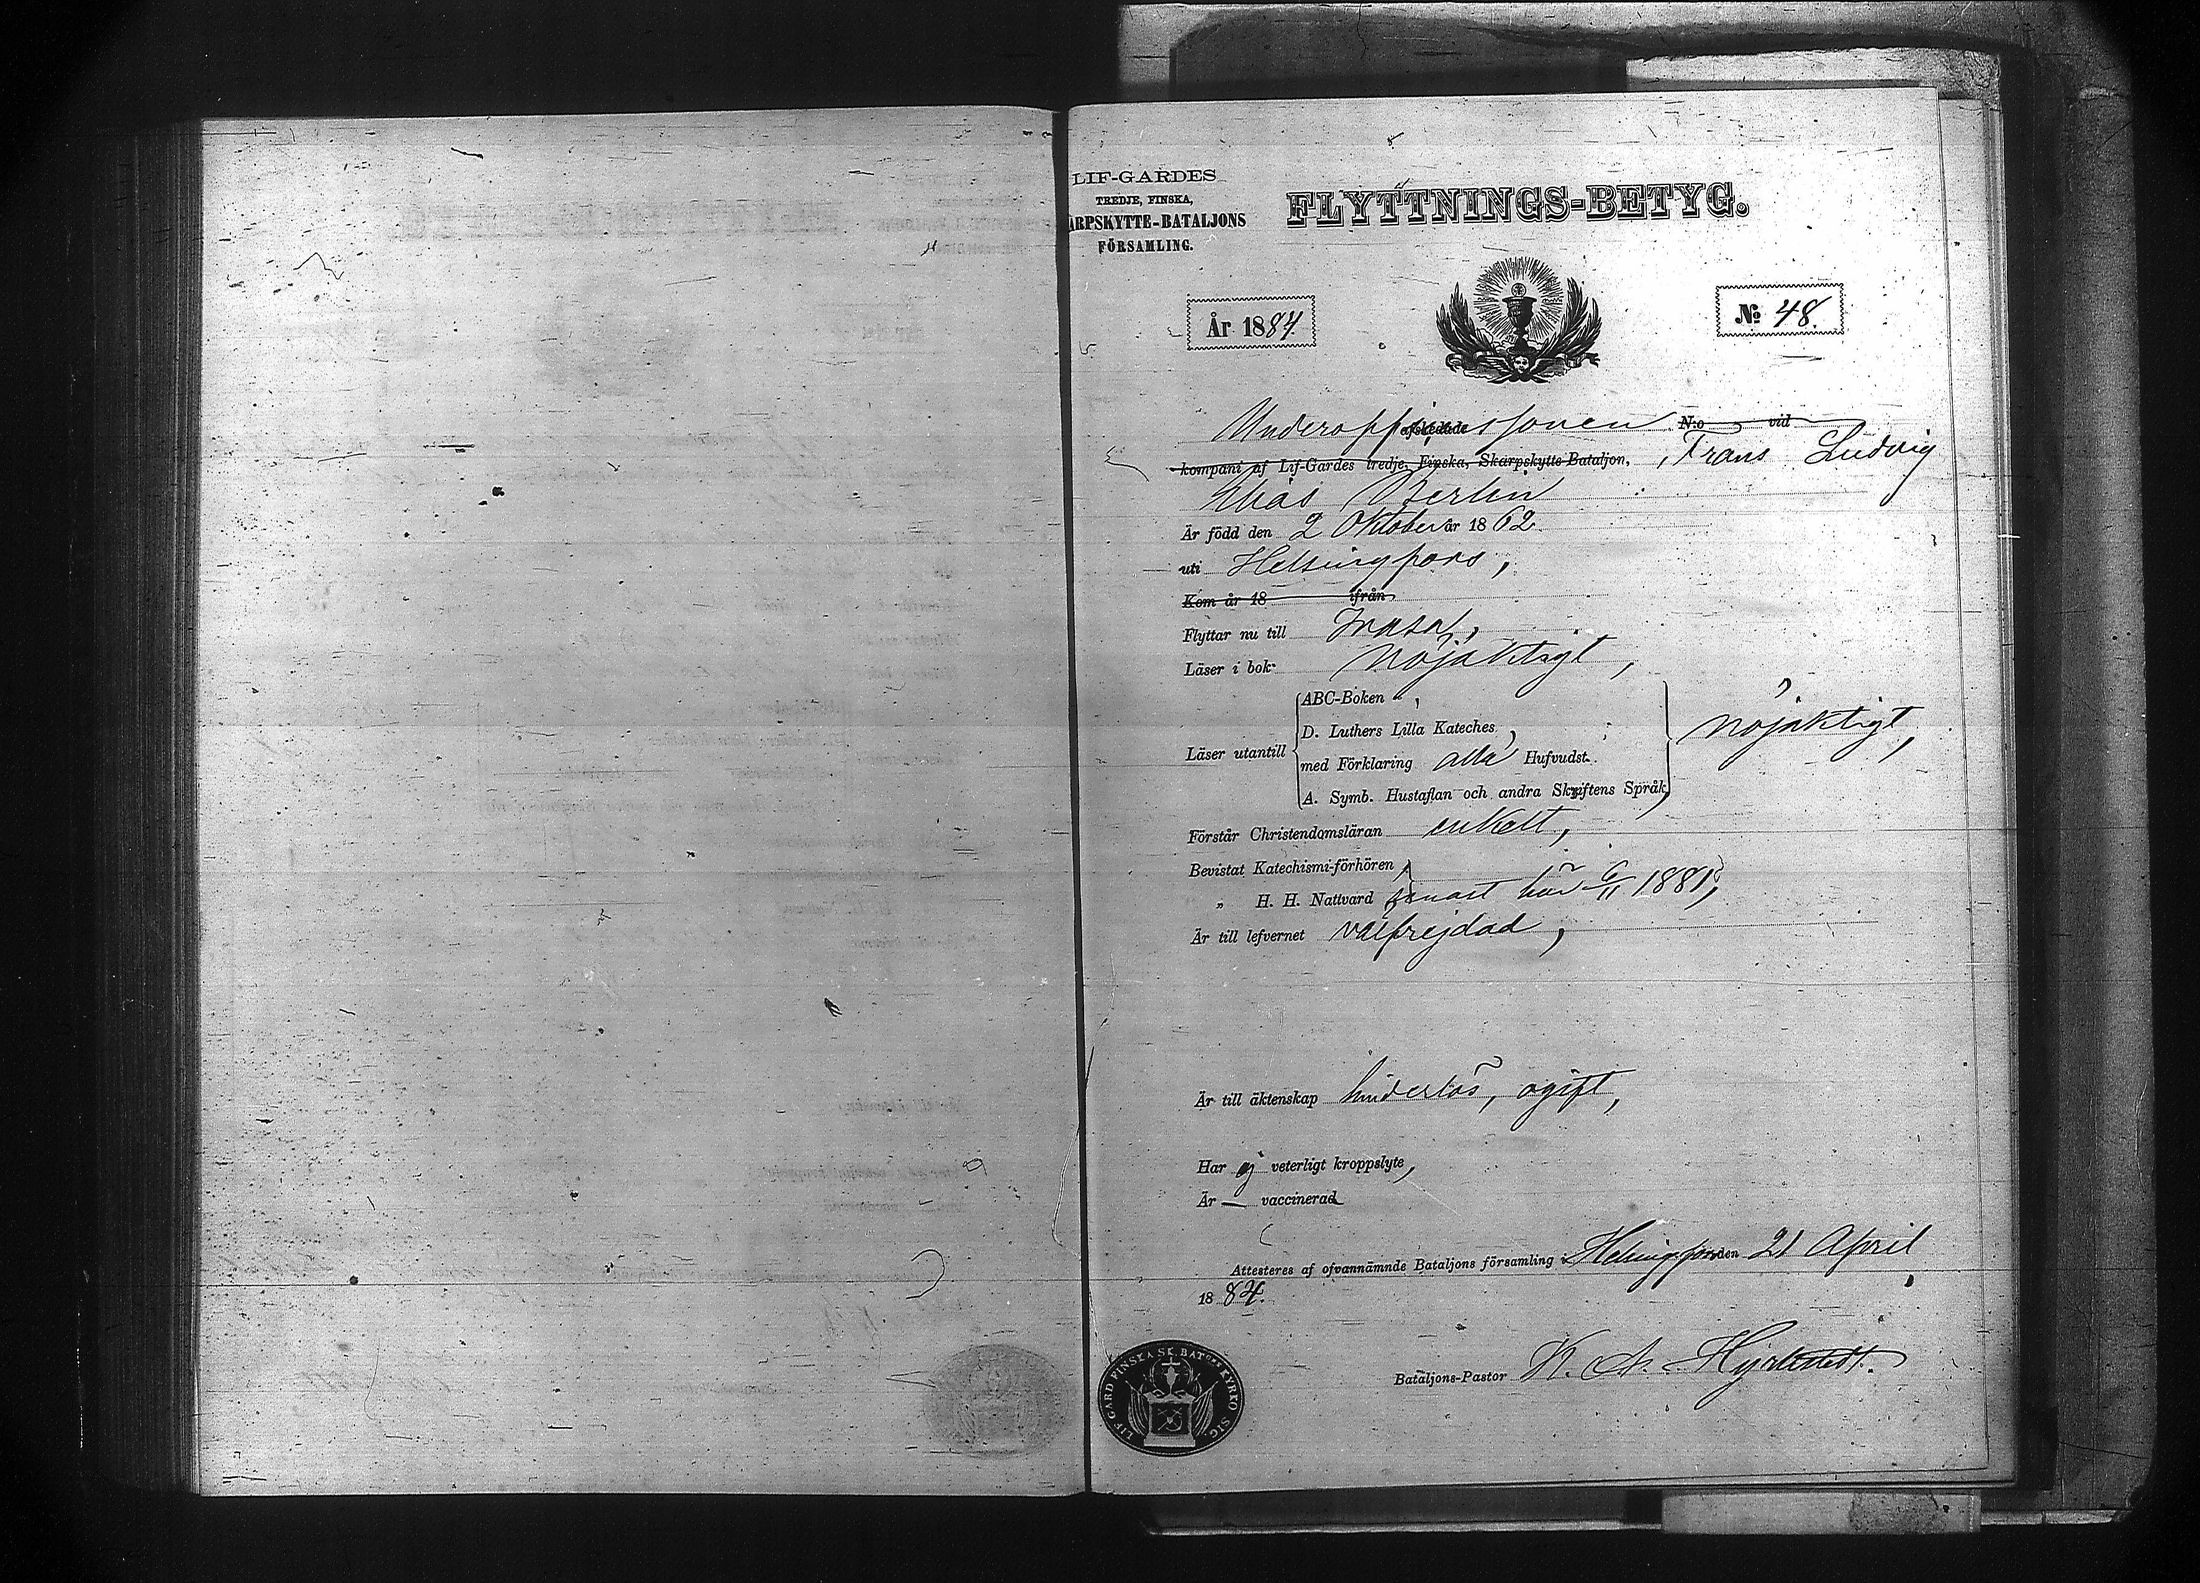 LIF-GARDES
TREDJE, FINSKA,
ARPSKYTTE-BATALJONS
FÖRSAMLING.
FLYTTNINGS-BETYG.
År 1884.
№ 48.
afskedade N:o vid
kompani af Lif-Gardes tredje, Finska, Skarpskytte-Bataljon, Frans Ludvig
Elias Berlin
Är född den 2 Oktober år 1862.
uti Helsingfors,
Kom år 18 ifrån
Flyttar nu till
Läser i bok nöjaktigt,
ABC-Boken,
D. Luthers Lilla Kateches,
Läser utantill
med Förklaring alla Hufvudst.
nöjaktigt,
A. Symb. Hustaflan och andra Skriftens Språk,
Förstår Christendomsläran enkelt,
Bevistat Katechismi-förhören,
„ H. H. Nattvard senast här 6/11 1881,
Är till lefvernet välfrejdad,
Är till äktenskap hinderlös, ogift,
Har ej veterligt kroppslyte,
Är — vaccinerad
Attesteres af ofvannämnde Bataljons församling i Helsingfors den 21 April
1884.
Bataljons-Pastor K. A. Hjeltstedt.
LIF GARD FINSKA SK. BAT:ONS KYRKO SIG.